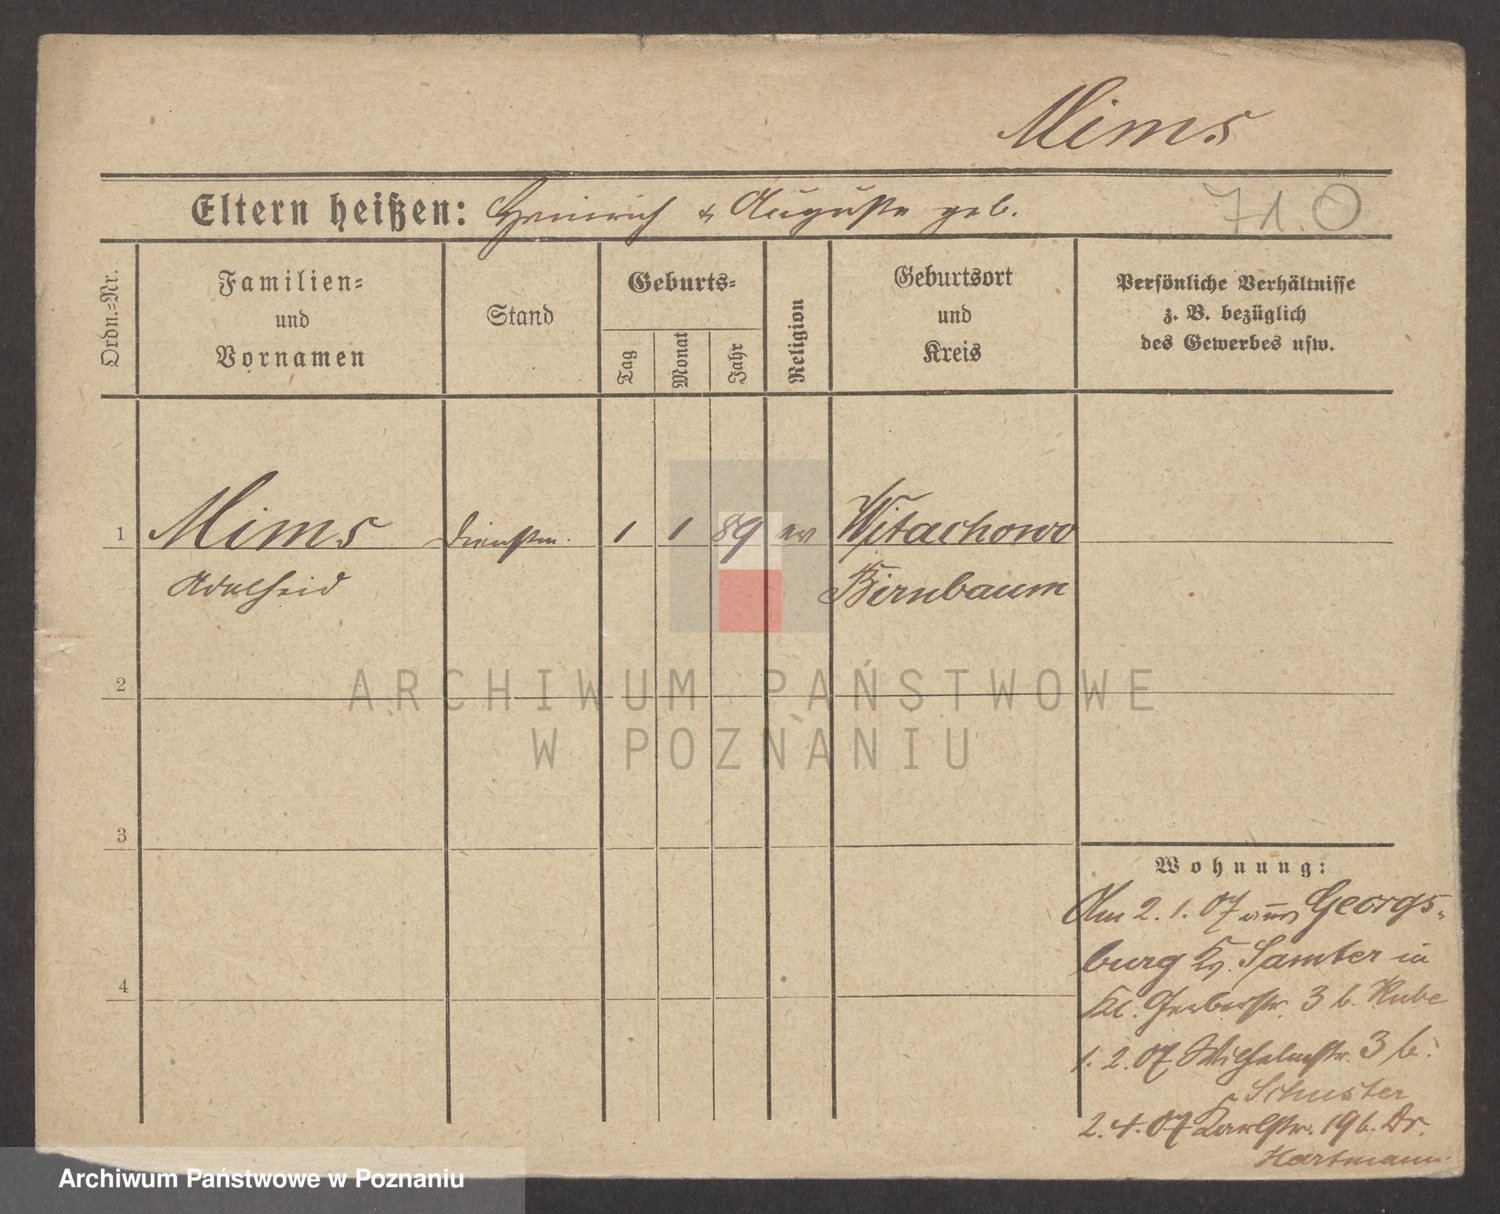 Mims
Eltern heißen: Heinrich & Auguste geb.
71.0
Ordn.=Nr.
Familien=
und
Vornamen
Stand
Geburts=
Tag
Monat
Jahr
Religion
Geburtsort
und
Kreis
Persönliche Verhältnisse
z. B. bezüglich
des Gewerbes usw.
1 Mims Dienstm. 1 1 89 ev Witachowo
Adelheid Birnbaum
2
3
4
Wohnung:
Am 2.1.07 aus Georgs-
burg Kr. Samter in
Kl. Gerberstr. 3 b. Kube
1.2.07 Wilhelmstr. 3 b.
Schuster
2.4.07 Karlstr. 19 b. Dr.
Hartmann
ARCHIWUM PAŃSTWOWE
W POZNANIU
Archiwum Państwowe w Poznaniu